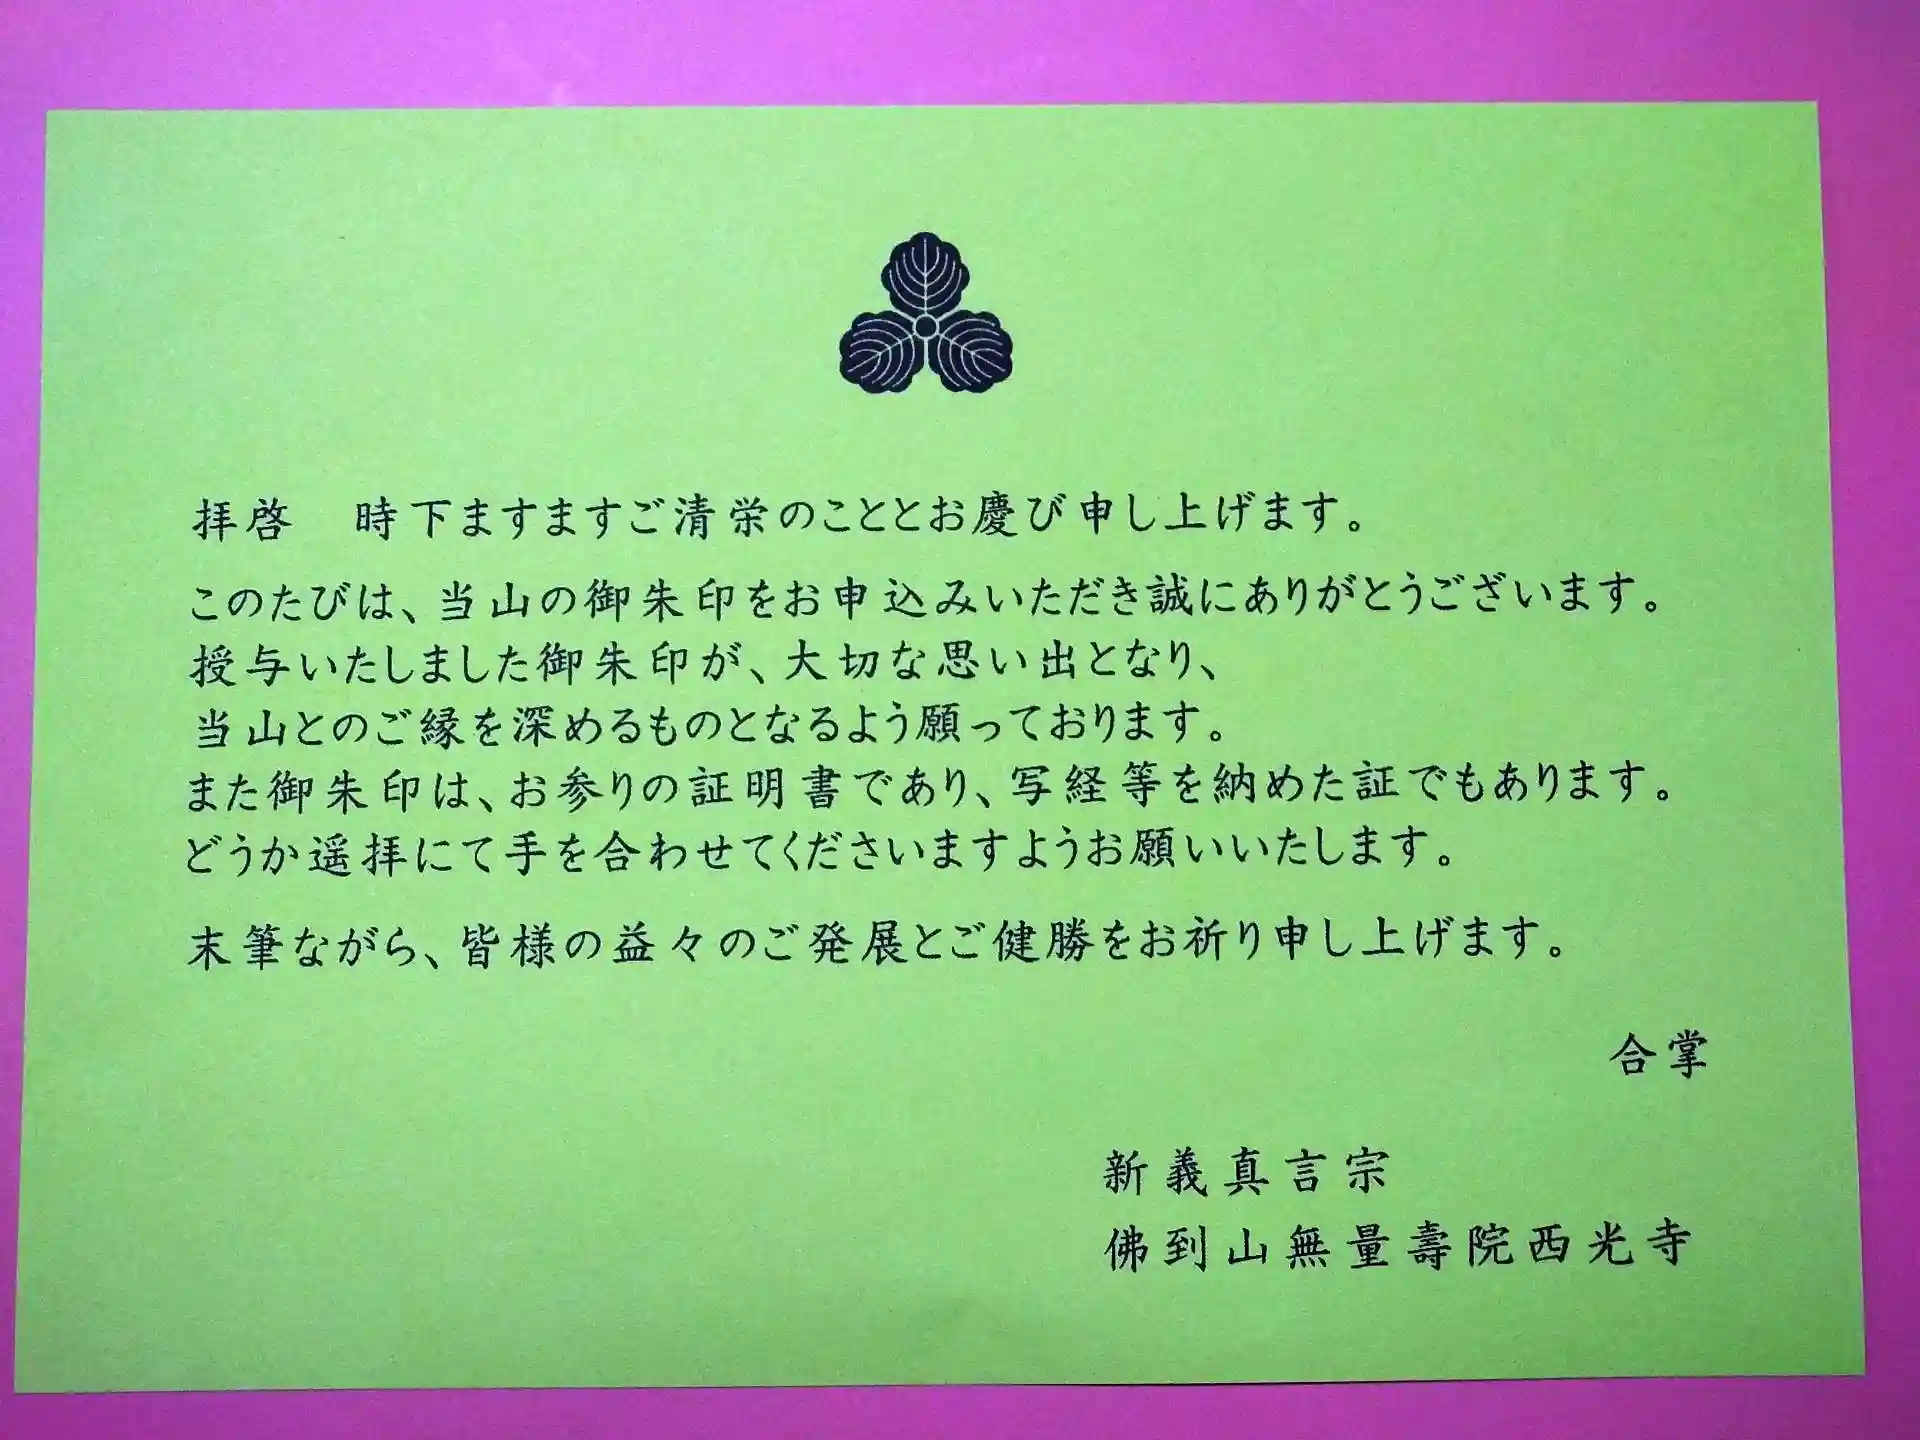 拝啓　時下ますますご清栄のこととお慶び申し上げます。
このたびは、当山の御朱印をお申込みいただき誠にありがとうございます。
授与いたしました御朱印が、大切な思い出となり、
当山とのご縁を深めるものとなるよう願っております。
また御朱印は、お参りの証明書であり、写経等を納めた証でもあります。
どうか遥拝にて手を合わせてくださいますようお願いいたします。
末筆ながら、皆様の益々のご発展とご健勝をお祈り申し上げます。
合掌
新義真言宗
佛到山無量壽院西光寺